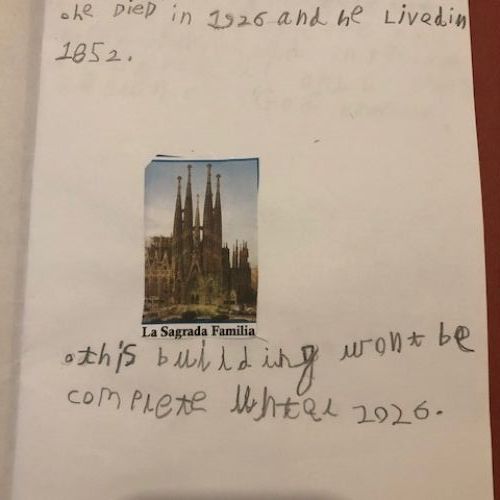 .he DieD in 1926 and he Lived in
1852.
La Sagrada Familia
.this building wont be
comPlete Untal 2026.